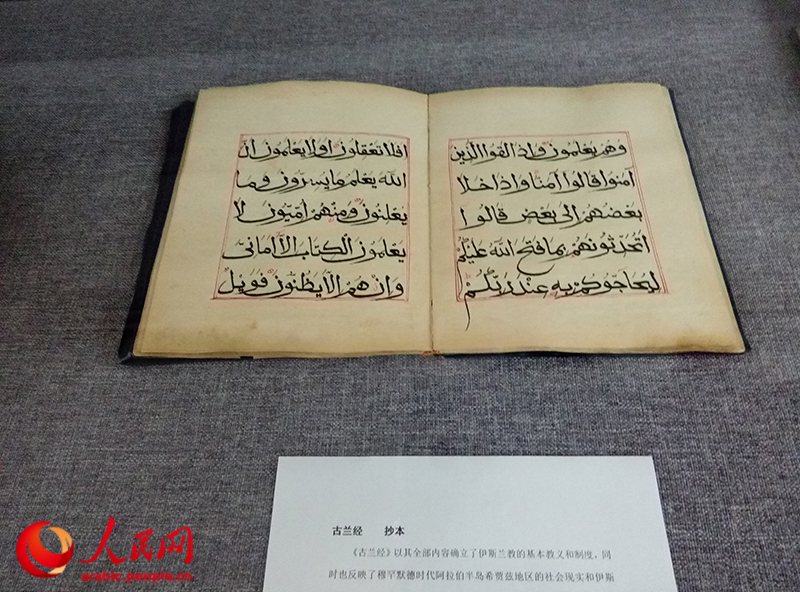 وهم يعلمون واذا لقوا الذين
امنوا قالوا آمنا واذا خلا
بعضهم الى بعض قالوا
أتحدثونهم بما فتح الله عليكم
ليحاجوكم به عند ربكم
افلا تعقلون اولا يعلمون ان
الله يعلم ما يسرون وما
يعلنون ومنهم أميون لا
يعلمون الكتاب الا أمانى
وان هم الا يظنون فويل
古兰经 抄本
《古兰经》以其全部内容确立了伊斯兰教的基本教义和制度，同
时也反映了穆罕默德时代阿拉伯半岛希贾兹地区的社会现实和伊斯
人民网
arabic.people.cn